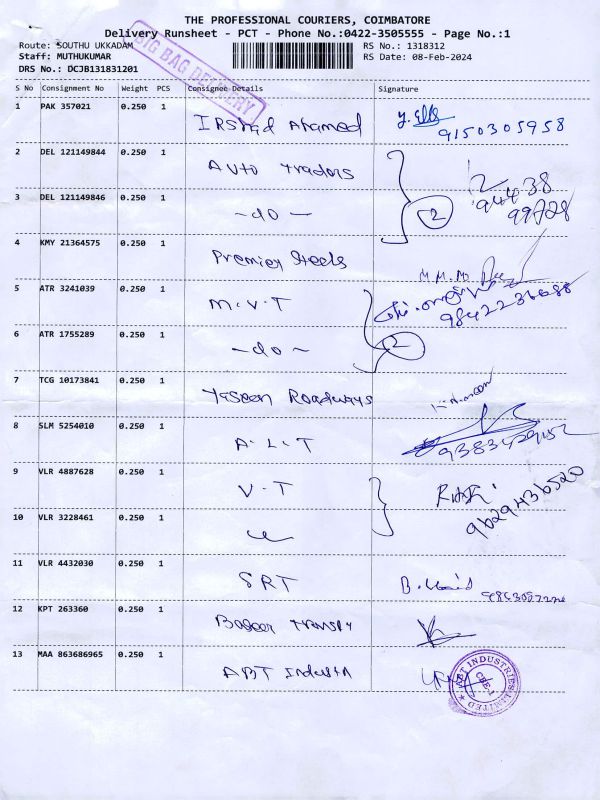 THE PROFESSIONAL COURIERS, COIMBATORE
Delivery Runsheet - PCT - Phone No.:0422-3505555 - Page No.:1
Route: SOUTHU UKKADAM
RS No.: 1318312
Staff: MUTHUKUMAR
RS Date: 08-Feb-2024
DRS No.: DCJB131831201
BIG BAG DELIVERY
S No Consignment No Weight PCS Consignee Details Signature
1 PAK 357021 0.250 1 IRShad Ahamed
9150305958
2 DEL 121149844 0.250 1 Auto Tradors
3 DEL 121149846 0.250 1 -do-
2
94438
99728
4 KMY 21364575 0.250 1 Premier Steels
5 ATR 3241039 0.250 1 M.V.T
9842236688
6 ATR 1755289 0.250 1 -do-
2
7 TCG 10173841 0.250 1 Yaseen Roadways
8 SLM 5254010 0.250 1 A.L.T
9 VLR 4887628 0.250 1 V.T
9629436520
10 VLR 3228461 0.250 1
11 VLR 4432030 0.250 1 SRT
12 KPT 263360 0.250 1
13 MAA 863686965 0.250 1 ABT Industri
ABT INDUSTRIES LIMITED
CBE-1